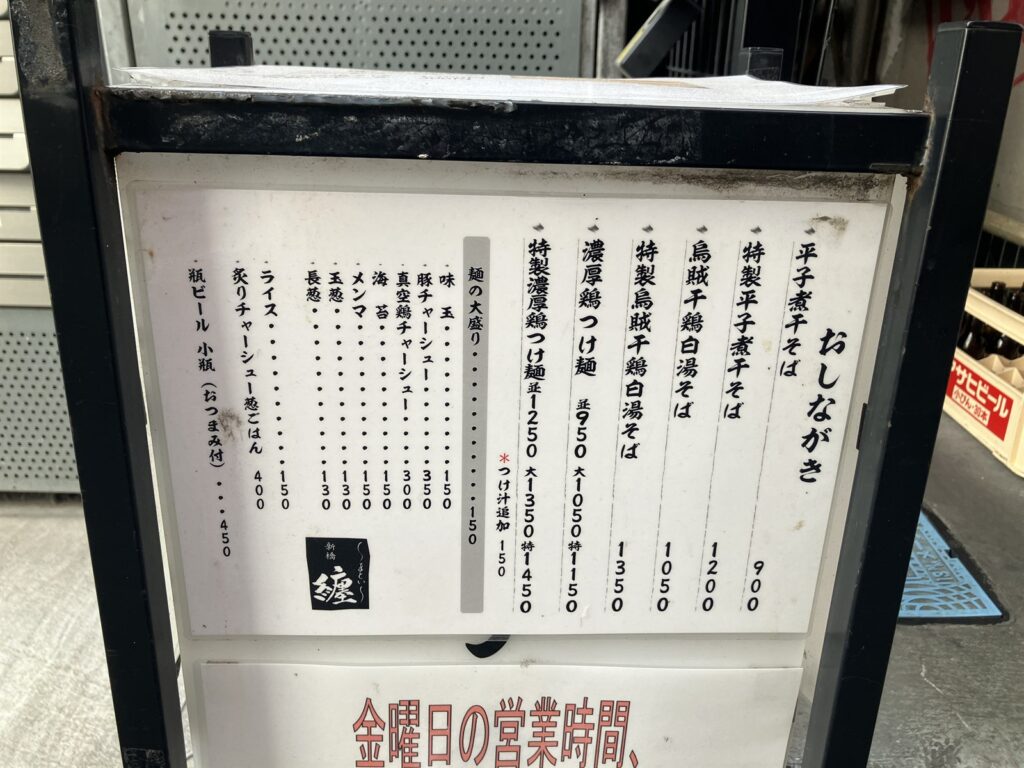 おしながき
平子煮干そば 900
特製平子煮干そば 1200
烏賊干鶏白湯そば 1050
特製烏賊干鶏白湯そば 1350
濃厚鶏つけ麺 並950 大1050 特1150
特製濃厚鶏つけ麺 並1250 大1350 特1450
*つけ汁追加 150
麺の大盛り・・・・・・・・・・・150
味玉・・・・・・・・・・・150
豚チャーシュー・・・・・・・350
真空鶏チャーシュー・・・・・300
海苔・・・・・・・・・・・150
メンマ・・・・・・・・・・150
玉葱・・・・・・・・・・・130
長葱・・・・・・・・・・・130
ライス・・・・・・・・・・150
炙りチャーシュー葱ごはん 400
瓶ビール 小瓶 (おつまみ付)・・・450
新橋
纏
〜まとい〜
金曜日の営業時間、
アサヒビール
小びん・30本